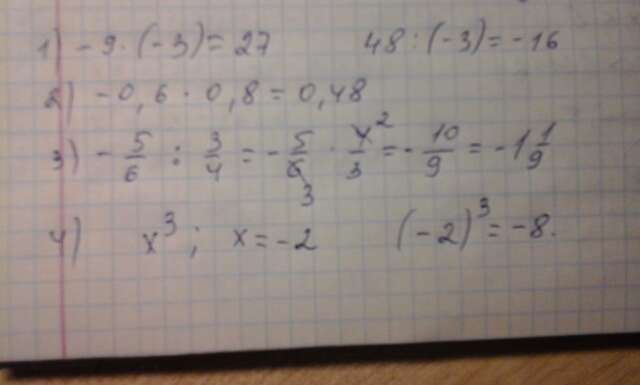 1) -9 · (-3) = 27 48 : (-3) = -16
2) -0,6 · 0,8 = 0,48
3) - 5/6 : 3/4 = - 5/6 3 · 4/3 2 = - 10/9 = -1 1/9
4) x³; x = -2 (-2)³ = -8.